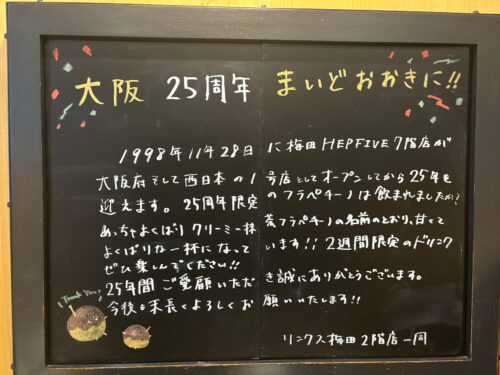 大阪 25周年 まいどおおきに!!
1998年11月28日に梅田HEPFIVE7階店が
大阪府そして西日本の1号店としてオープンしてから25年を
迎えます。25周年限定のフラペチーノは飲まれましたか?
めっちゃよくばりクリーミー抹茶フラペチーノの名前のとおり、甘くて
よくばりな一杯になっています!! 2週間限定のドリンク
ぜひ楽しんでください!!
25年間ご愛顧いただき誠にありがとうございます。
今後も末長くよろしくお願いいたします!!
Thank You!
リンクス梅田2階店一同